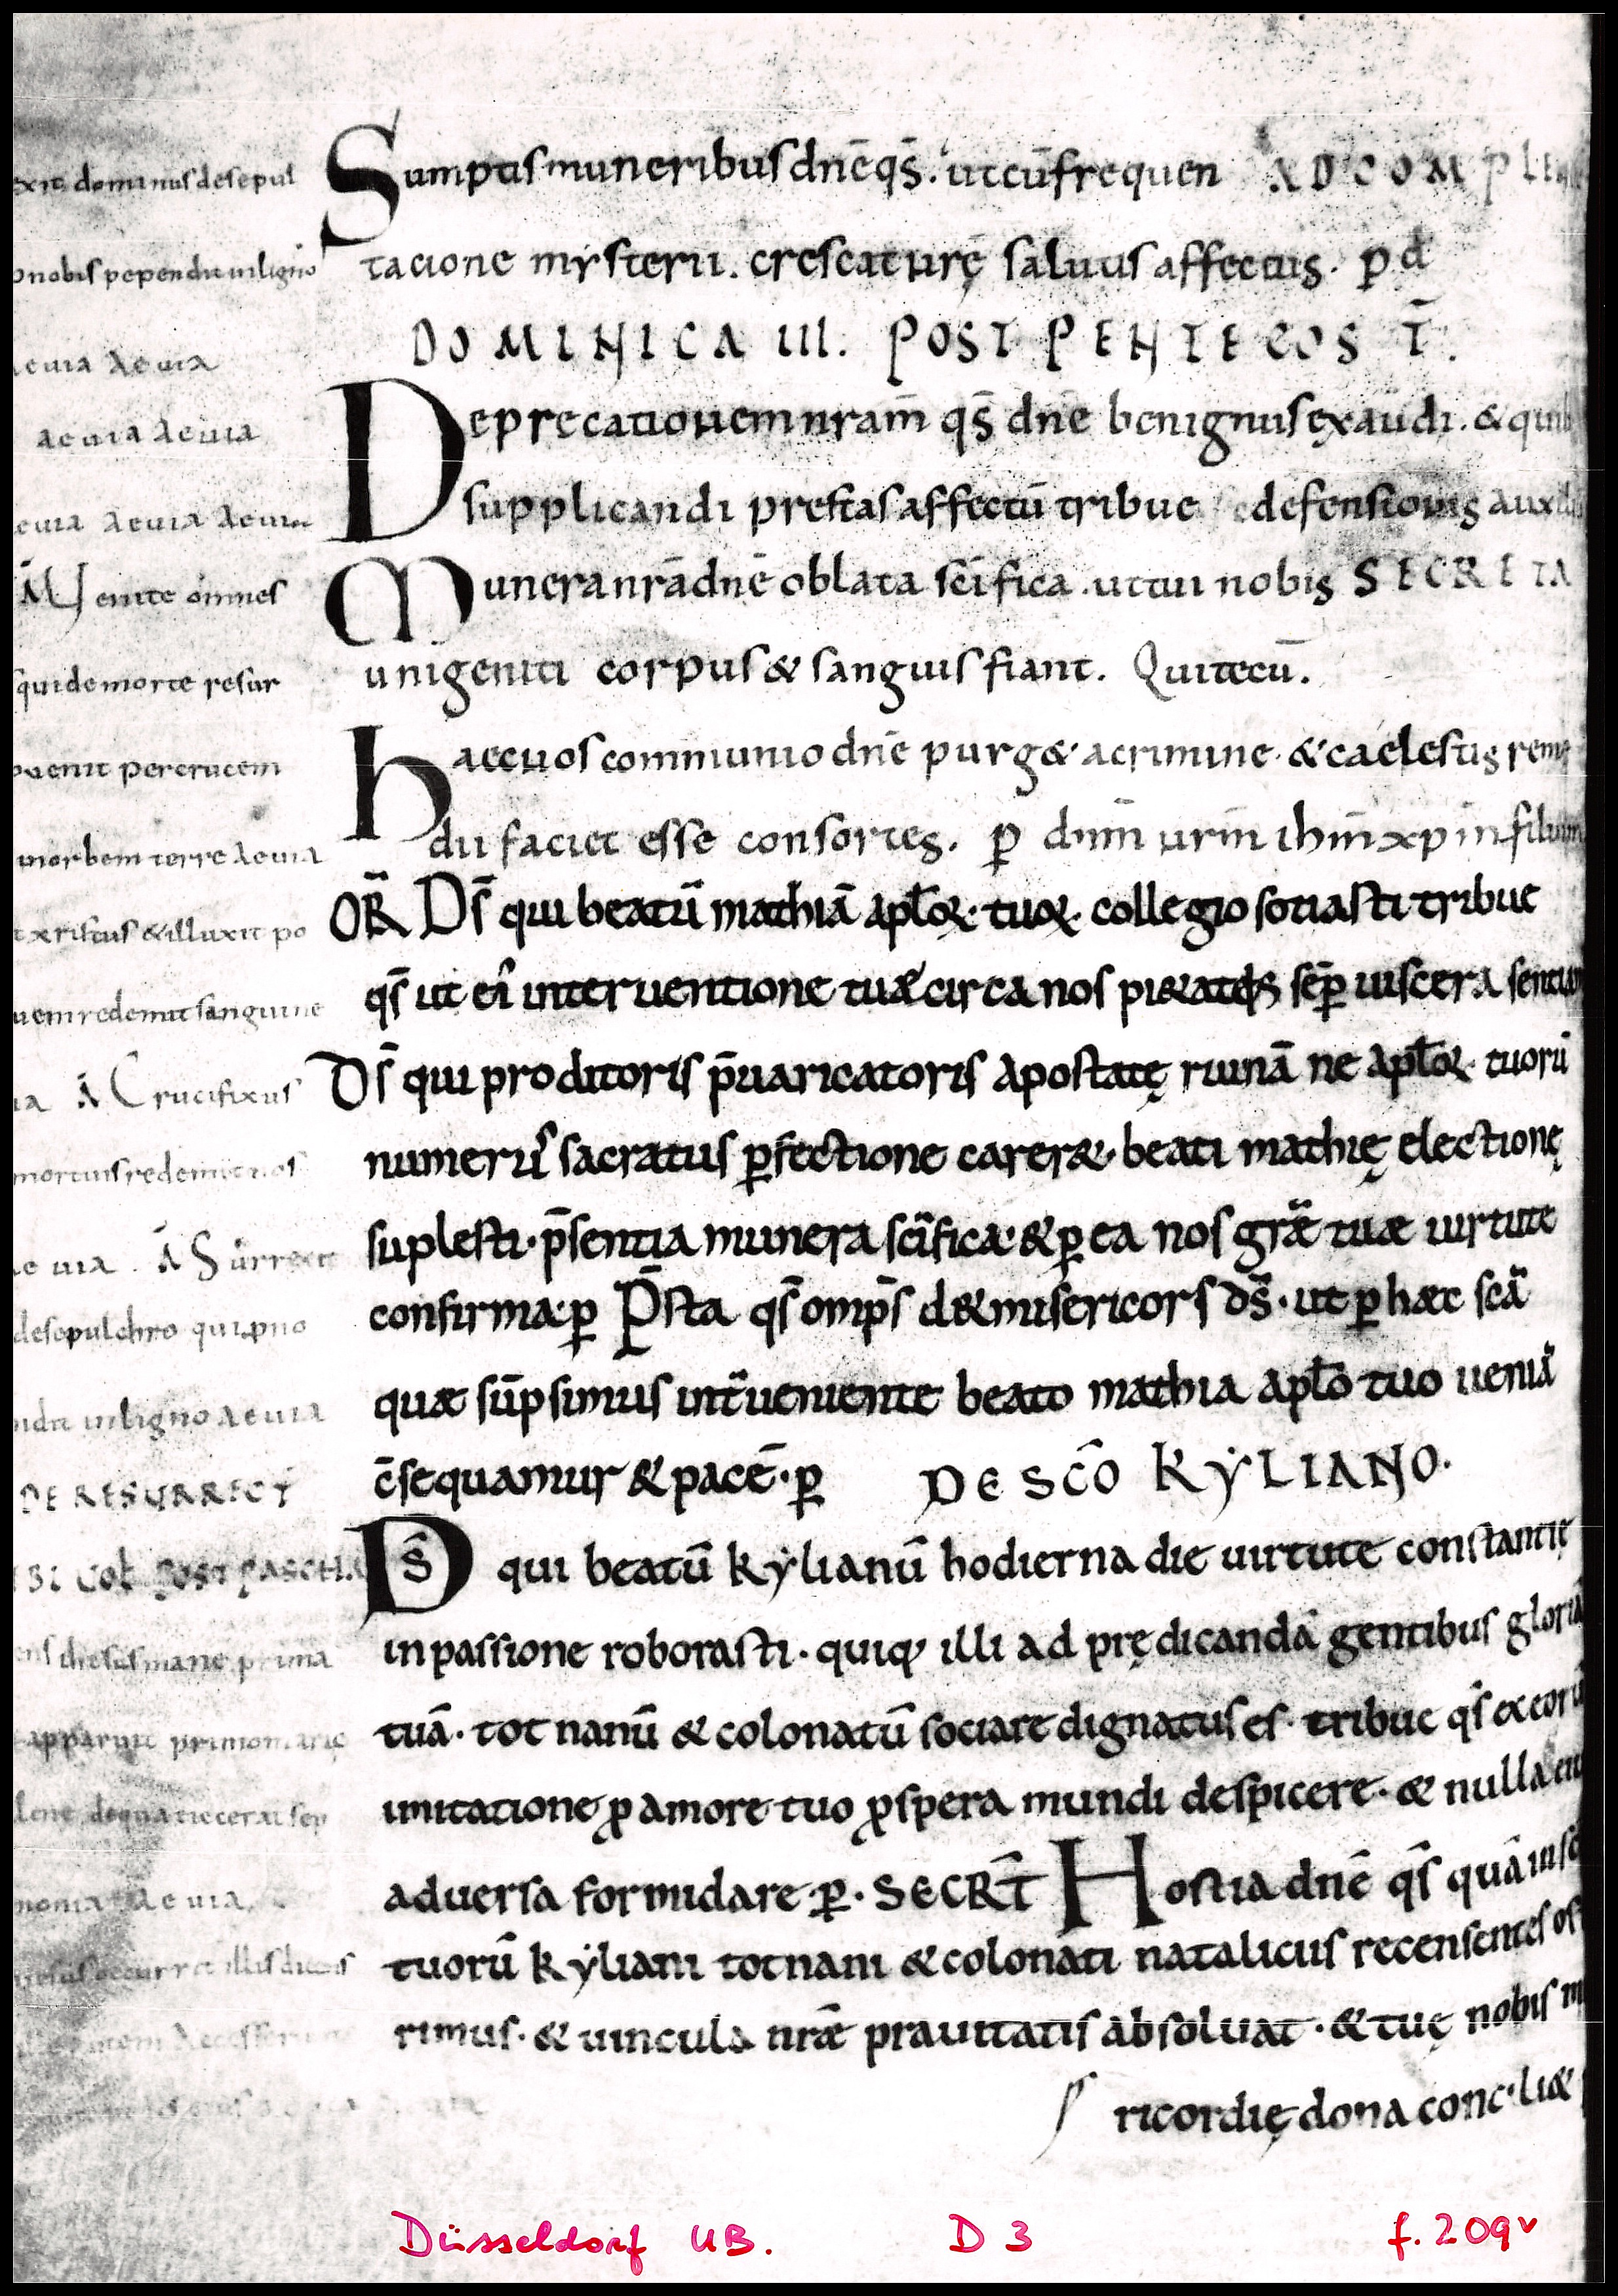 exit dominus desepul
nobis pependit inligno
aeuia Aeuia
aeuia Aeuia
euia Aeuia Aeuia
A Uenite omnes
qui de morte resur
uenit percrucem
inorbem terre Aeuia
xristus & illuxit po
uem redemit sanguine
A Crucifixus
mortuis redemit nos
uia . A Surrexit
desepulchro qui ꝓno
inligno Aeuia
DE RESURRECT
POST PASCHA
mane prima
apparuit primo marie
Aeuia
occurrit illis dicens
Sumptis muneribus dnē qs̄. ut cū frequen AD COMPLE
tacione mysterii. crescat nrę saluus affectus. ꝑ d
DOMINICA III. POST PENTECOST̄.
Deprecationem nram̄ qs̄ dnē benignus exaudi. & quib
supplicandi prestas affectū tribue defensionis auxili
Munera nrā dnē oblata sc̄ifica. ut tui nobis SECRETA
unigeniti corpus & sanguis fiant. Qui tecū.
haec nos communio dnē purg& a crimine. & caelestis reme
dii faciet esse consortes. ꝑ dnm̄ nrm̄ ihm̄ xpm̄ filium
OR̄ Ds̄ qui beatū mathiā aplōꝝ. tuoꝝ. collegio sotiasti tribue
qs̄ ut ei interuentione tuæ circa nos pi&atis sēꝑ uiscera
Ds̄ qui proditoris p̄uaricatoris apostatę ruinā ne aplōꝝ. tuorū
numerus sacratus ꝑfectione carer&. beati mathię electionę
suplesti. p̄sentia munera sc̄ifica. & ꝑ ea nos grae tuae uirtute
confirma. ꝑ P̄sta qs̄ omp̄s & misericors ds̄. ut ꝑ haec sc̄a
quae sūpsimus int̄ueniente beato mathia aplō tuo ueniā
c̄sequamur & pacē. ꝑ DE SCŌ KYLIANO.
DS̄ qui beatū kylianū hodierna die uirtute constantię
in passione roborasti. quiq; illi ad prędicandā gentibus gloriā
tuā. totnanū & colonatū sociare dignatus es. tribue qs̄ ex eorū
imitatione ꝓ amore tuo ꝓspera mundi despicere. & nulla
aduersa formidare. ꝑ. SECRT̄ Hostia dnē qs̄ quā in
tuorū kyliani totnani & colonati nataliciis recensentes of
rimus. & uincula nrae prauitatis absoluat. & tuę nobis
ricordię dona concili&
Düsseldorf UB. D 3 f. 209v